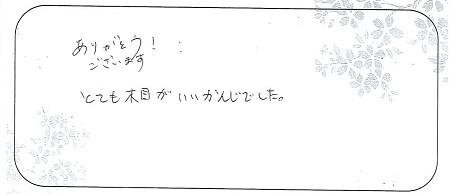 ありがとう!
ございます
とても木目がいいかんじでした。